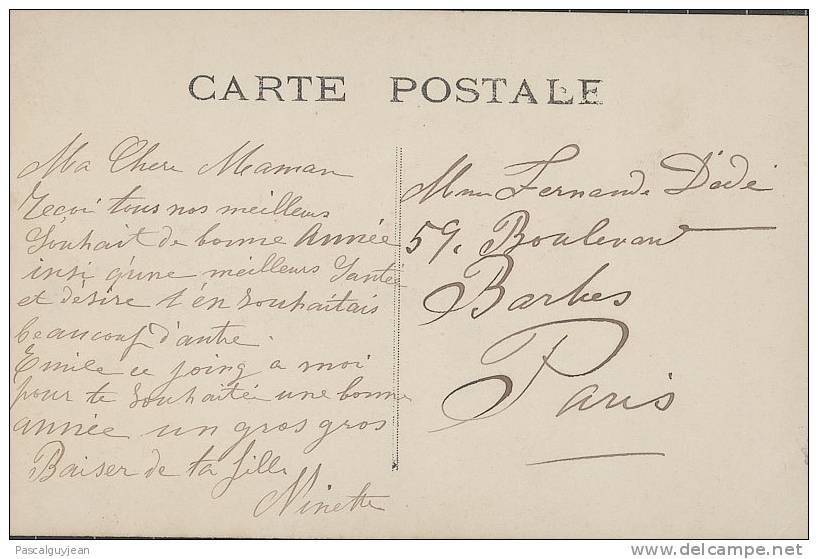 CARTE POSTALE
Ma Chere Maman
reçoi tous nos meilleurs
Souhait de bonne Année
insi qu'une meilleurs Santée
et désire t'én souhaitais
beaucoup d'autre.
Emile ce joing a moi
pour te souhaitée une bonne
année un gros gros
Baiser de ta fille
Ninette
Mme Fernande Dédé
59, Boulevard
Barbes
Paris
Pascalguyjean
www.delcampe.net